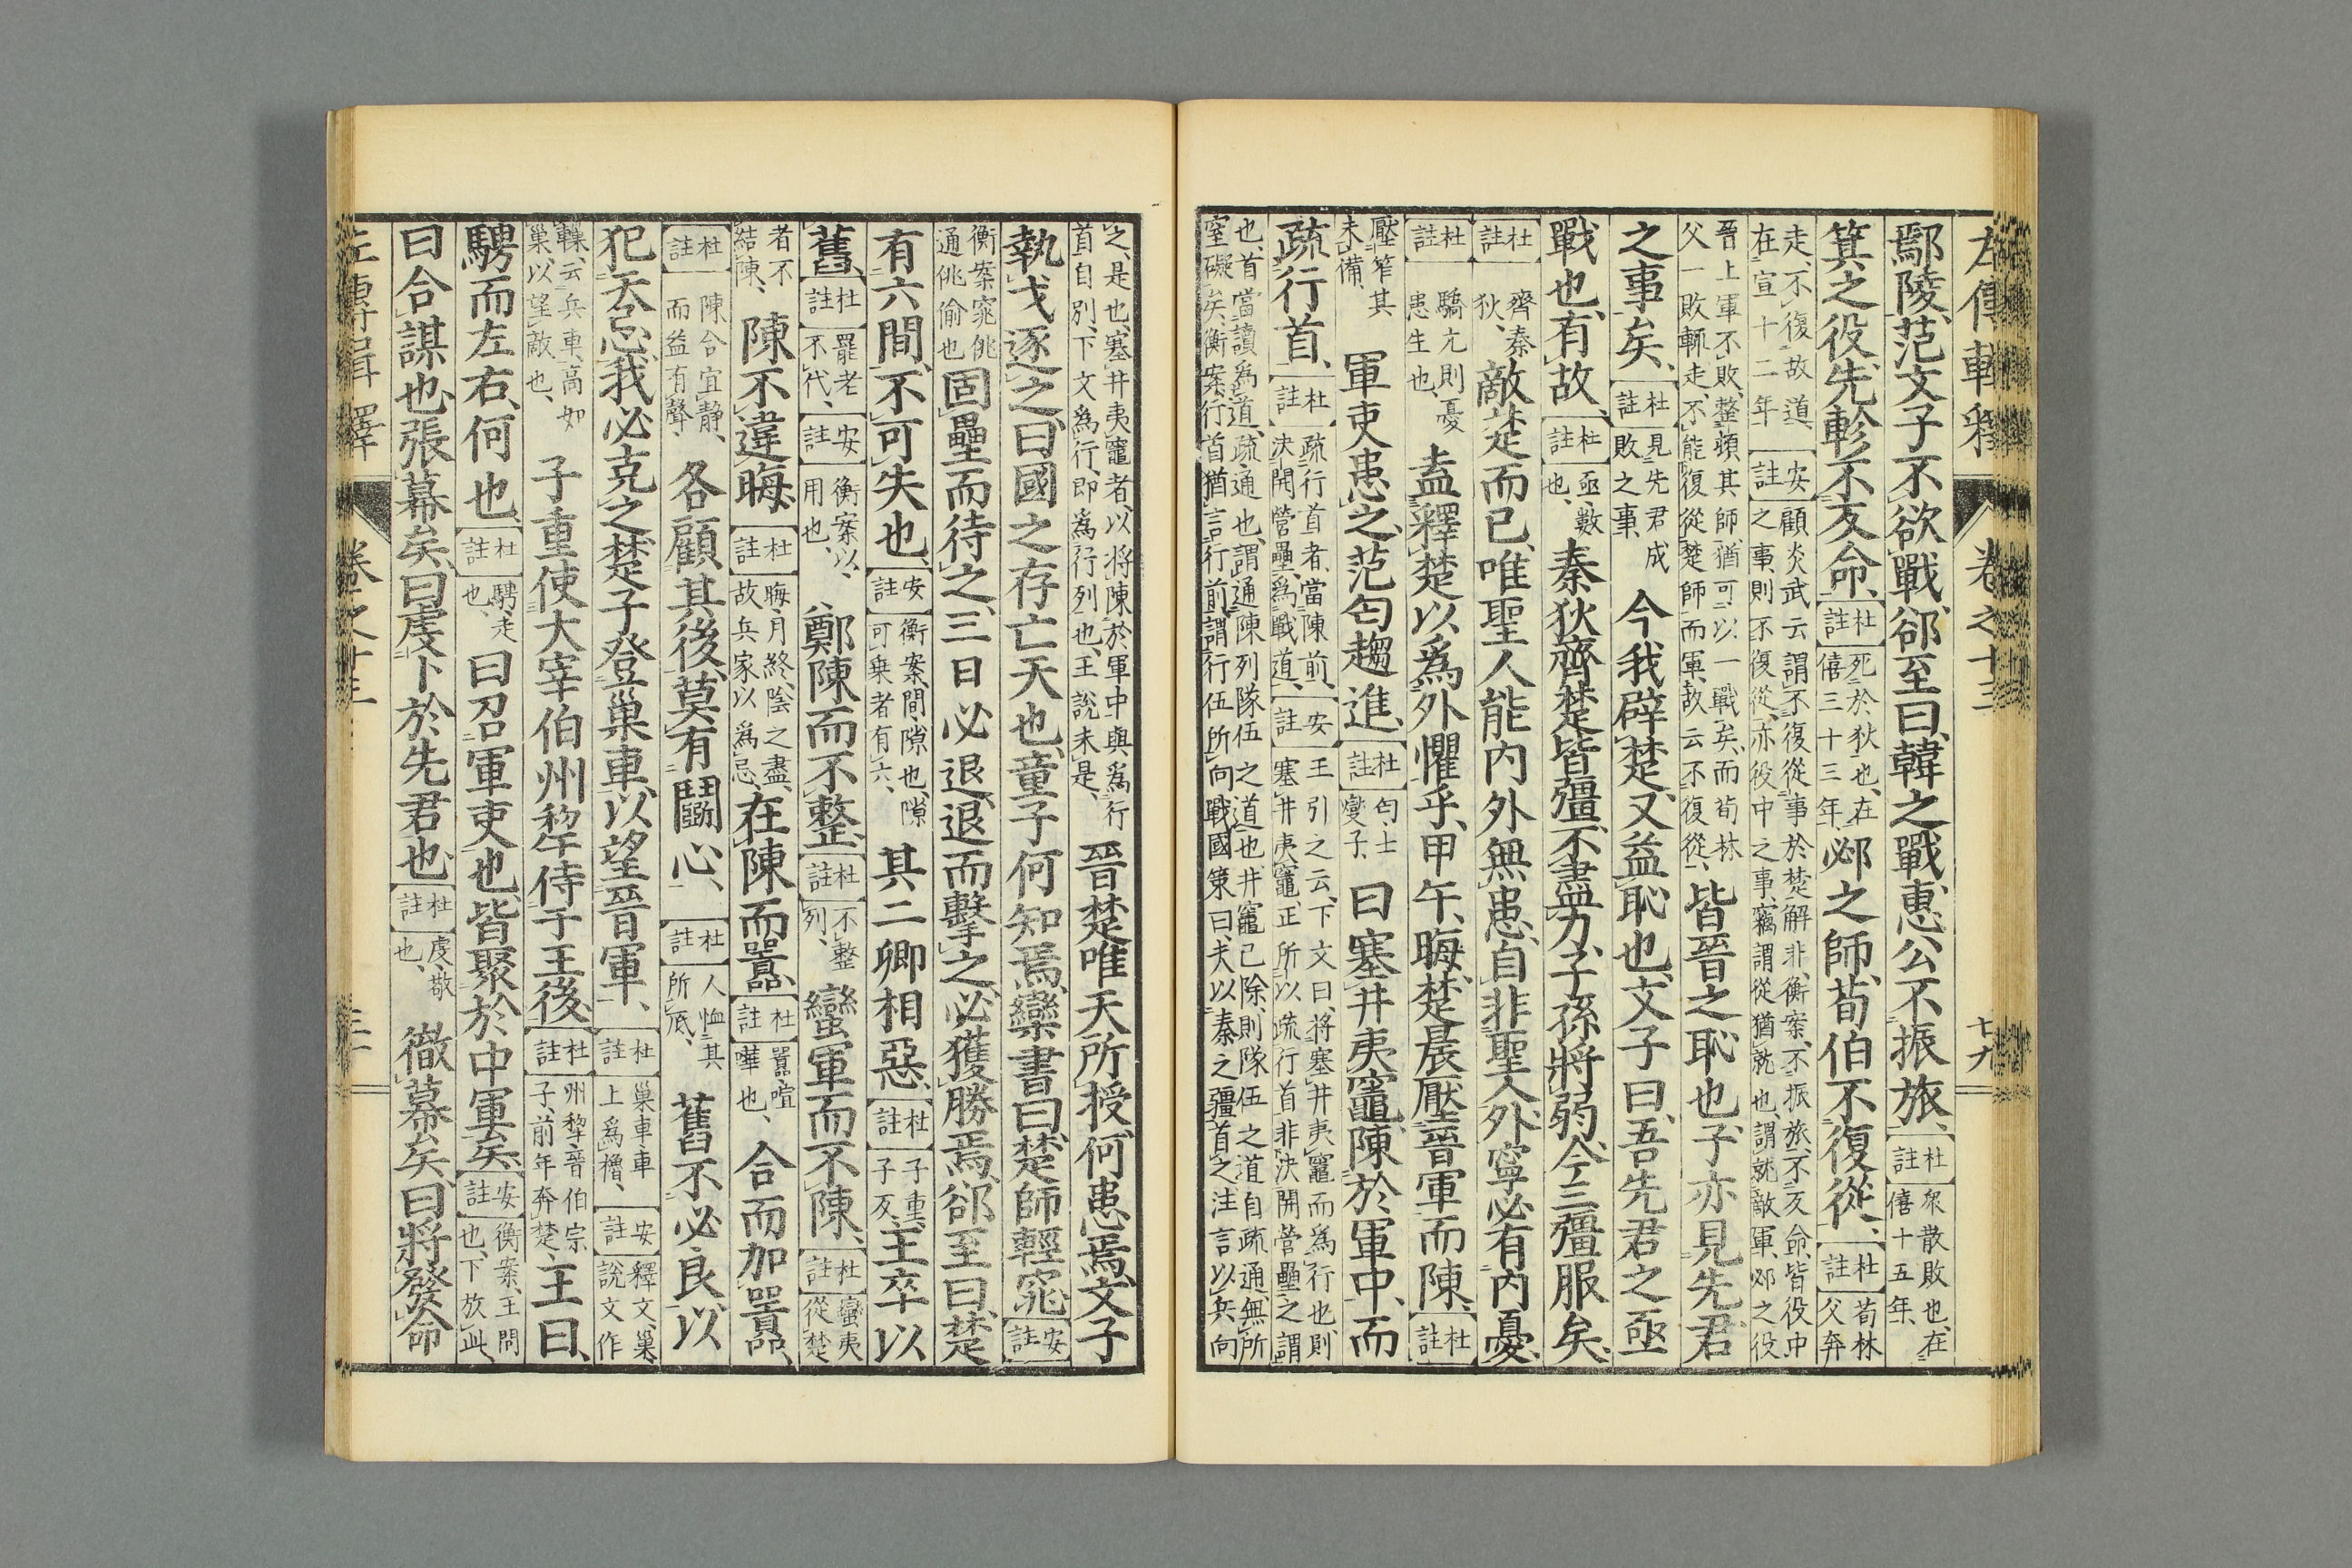 左傳輯釋 卷之十三 十九
鄢陵、范文子不欲戰、郤至曰、韓之戰、惠公不振旅、杜註衆散敗也、在僖十五年、
箕之役、先軫不反命、杜註死於狄也、在僖三十三年、邲之師、荀伯不復從、杜註荀林父奔
走、不復故道、在宣十二年、安註顧炎武云、謂不復從事於楚、解非、衡案、不振旅、不反命、皆役中之事、則不復從、亦役中之事、竊謂從猶就也、謂就敵軍、邲之役
晉上軍不敗、整頓其師、猶可以一戰矣、而荀林父一敗輒走、不能復從楚師而軍、故云不復從、皆晉之恥也、子亦見先君
之事矣、杜註見先君成敗之事、今我辟楚、又益恥也、文子曰、吾先君之亟
戰也、有故、杜註亟、數也、秦狄齊楚皆彊、不盡力、子孫將弱、今三彊服矣、
杜註齊秦狄、敵楚而已、唯聖人能內外無患、自非聖人、外寧必有內憂、
杜註驕亢則憂患生也、盍釋楚以爲外懼乎、甲午、晦、楚晨壓晉軍而陳、杜註
壓笮其未備、軍吏患之、范匄趨進、杜註匄士燮子、曰、塞井夷竈、陳於軍中、而
疏行首、杜註疏行首者、當陳前決開營壘、爲戰道、安註王引之云、下文曰、將塞井夷竈而爲行也、則塞井夷竈、正所以疏行首、非決開營壘之謂
也、首當讀爲道、疏、通也、謂通陳列隊伍之道也、井竈已除、則隊伍之道自疏通、無所窒礙矣、衡案、行首、猶言行前、謂行伍所向、戰國策曰、夫以秦之彊首之、注言以兵向
之、是也、塞井夷竈者、以將陳於軍中與爲行首自別、下文爲行、即爲行列也、王說未是、晉楚唯天所授、何患焉、文子
執戈逐之、曰國之存亡天也、童子何知焉、欒書曰、楚師輕窕、安註
衡案窕佻通佻偷也固壘而待之、三日必退、退而擊之、必獲勝焉、郤至曰、楚
有六間、不可失也、安註衡案、間、隙也、隙可乘者有六、其二卿相惡、杜註子重、子反、王卒以
舊、杜註罷老不代、安註衡案、以、用也、鄭陳而不整、杜註不整列、蠻軍而不陳、杜註蠻夷從楚
者不結陳、陳不違晦、杜註晦、月終、陰之盡、故兵家以爲忌、在陳而嚻、杜註嚻、喧嘩也、合而加嚻、
杜註陳合宜靜、而益有聲、各顧其後、莫有鬭心、杜註人恤其所底、舊不必良、以
犯天忌、我必克之、楚子登巢車、以望晉軍、杜註巢車、車上爲櫓、安註釋文、巢、說文作
轈、云、兵車、高如巢、以望敵也、子重使大宰伯州犂侍于王後、杜註州犂晉伯宗子、前年奔楚、王曰、
騁而左右、何也、杜註騁、走也、曰、召軍吏也、皆聚於中軍矣、安註衡案、王問也、下放此、
曰合謀也、張幕矣、曰虔卜於先君也、杜註虔、敬也、徹幕矣、曰將發命